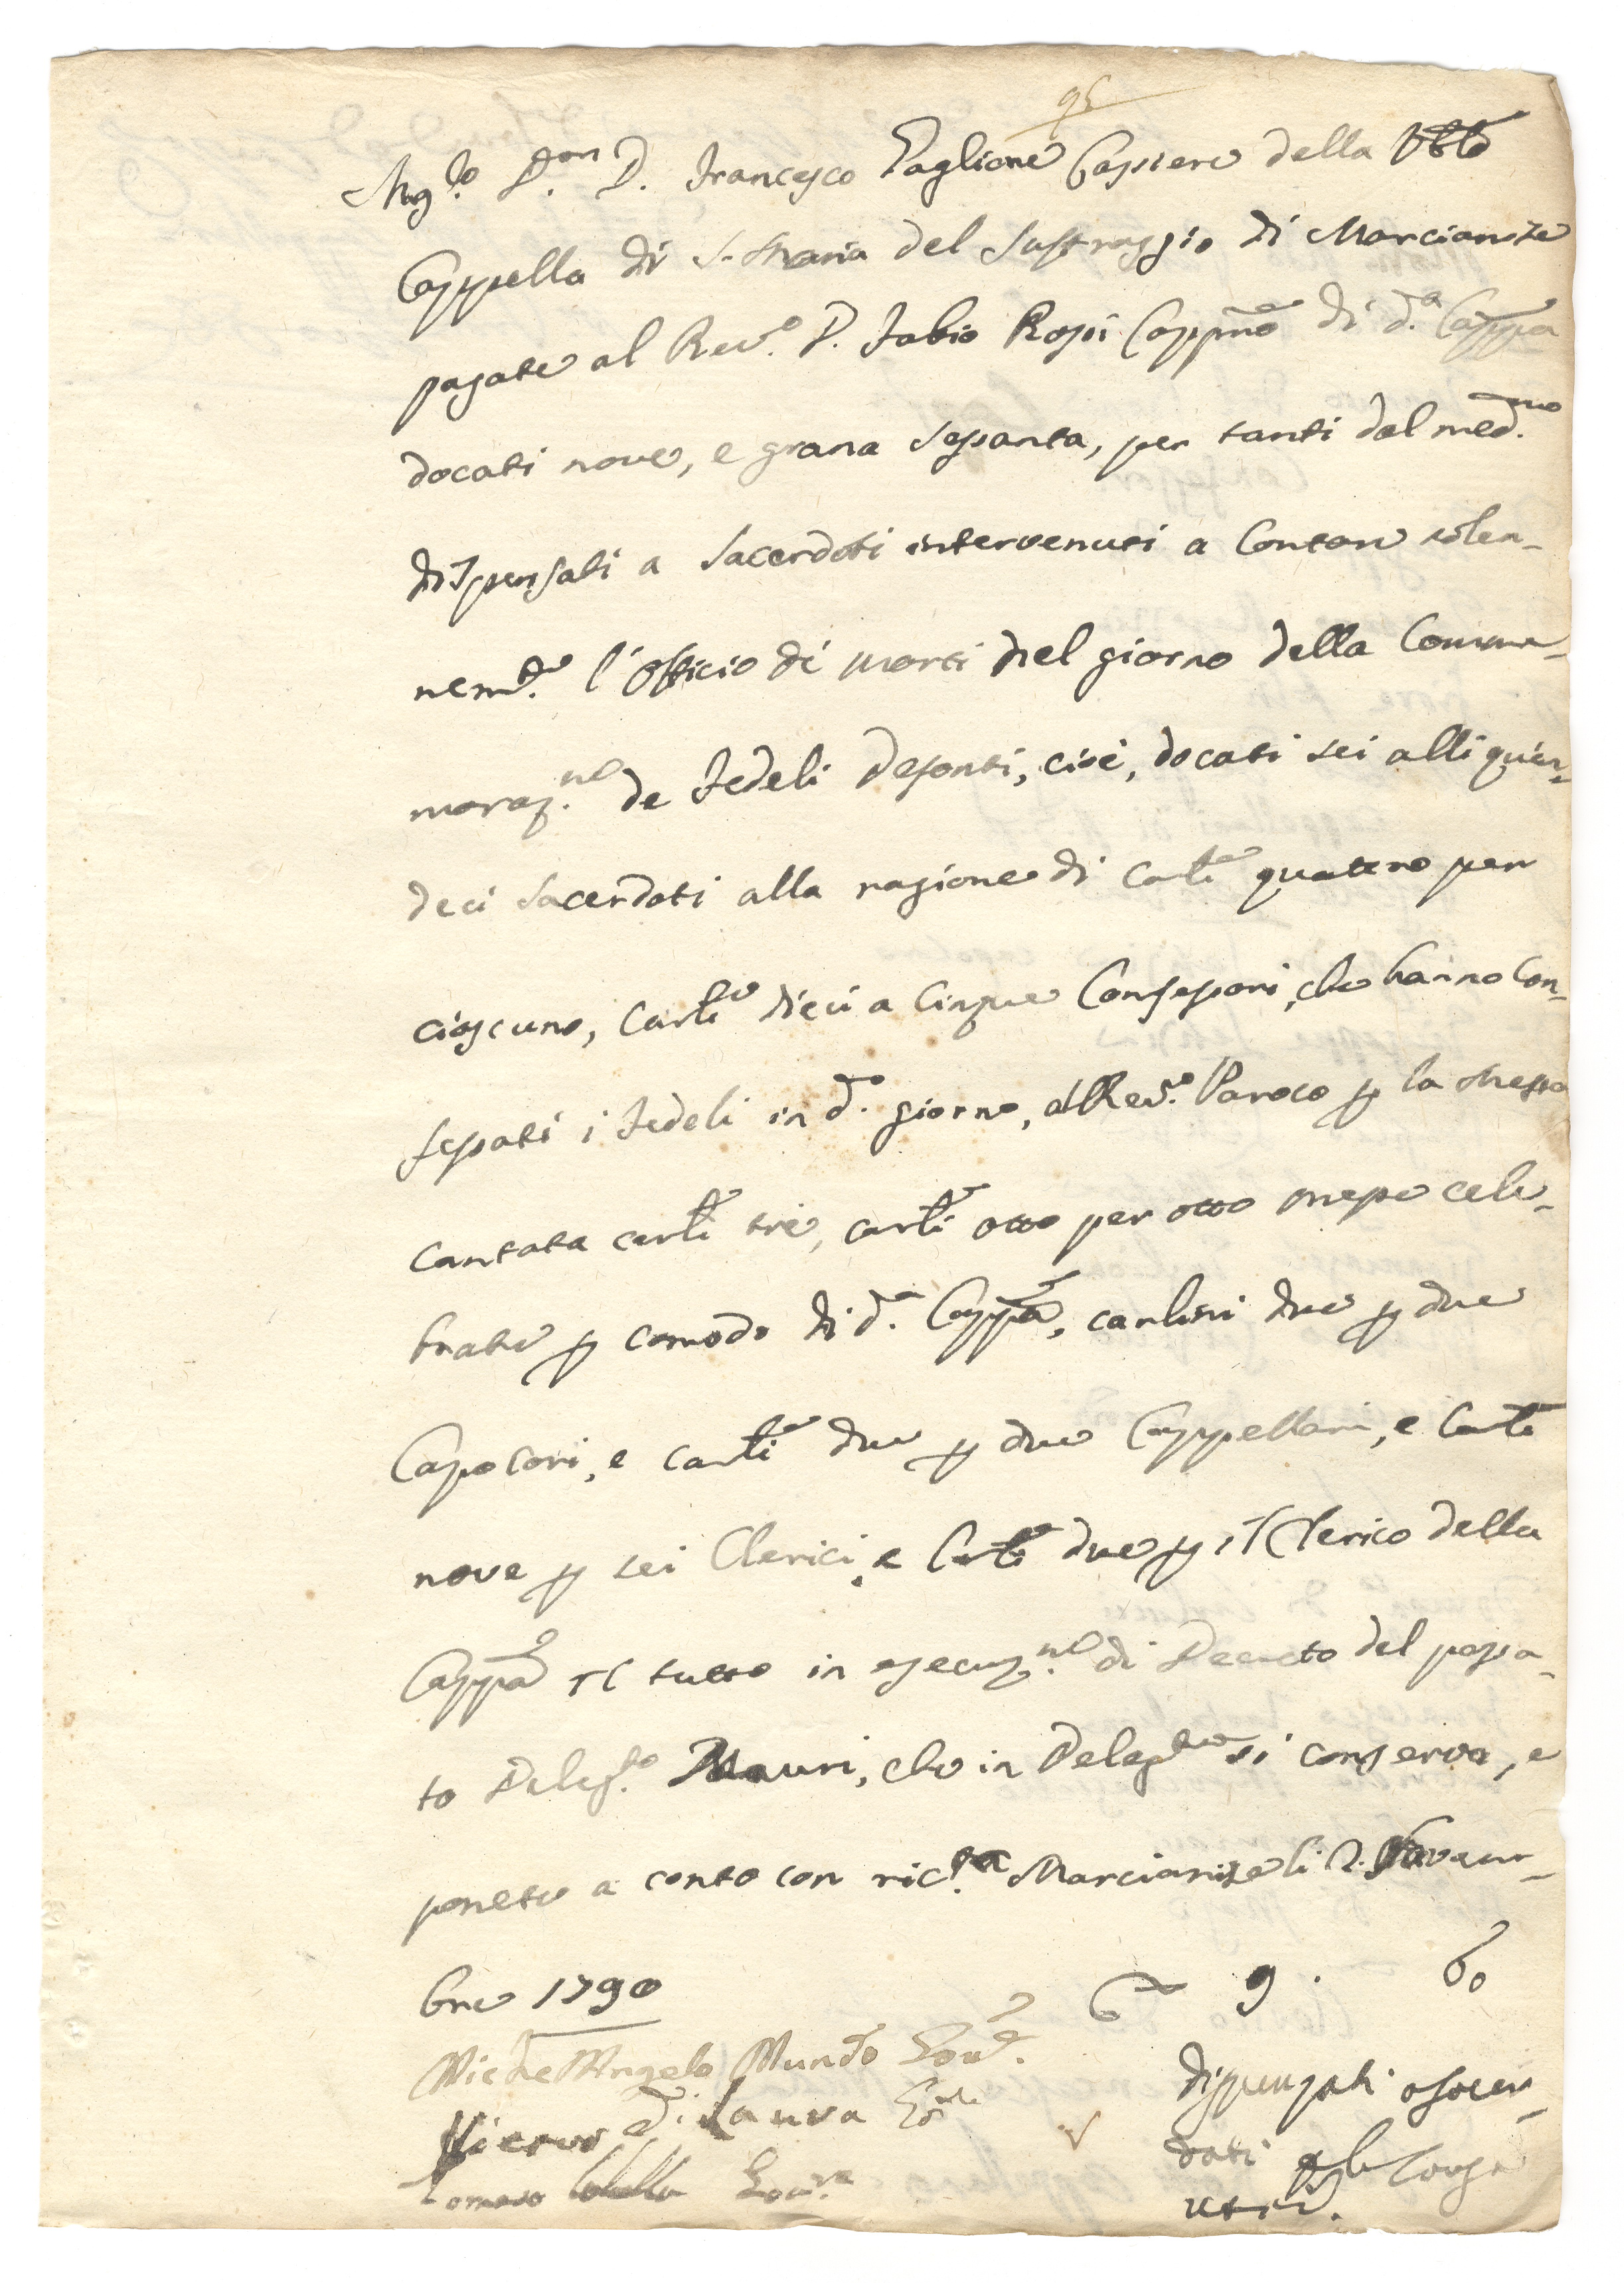 95
Mag.co D.on D. Francesco Paglione Cassiere della
Cappella di S. Maria del Suffraggio di Marcianise
pagate al Rev.o D. Fabio Rossi Cappno di d.a Cappa
docati nove, e grana sessanta, per tanti dal med.mo
dispensati a Sacerdoti intervenuti a Cantare solen-
nem.te l'officio di morti nel giorno della Comme-
moraz.ne de Fedeli defonti, cioè, docati sei alli quin-
deci Sacerdoti alla ragione di carli quattro per
ciascuno, Carli dieci a Cinque Confessori, che hanno Con-
fessati i Fedeli in d.o giorno, al Rev.o Paroco p la Messa
Cantata carli tre, carli otto per otto messe cele-
brate p comodo di d.a Cappa, carlini due p due
Capocori, e carli due p due Cappellani, e Carli
nove p sei Clerici, e Carli due p il Clerico della
Cappa il tutto in esecuz.ne di Decreto del passa-
to Deleg.to Mauri, che in Deleg.ne si conserva, e
ponete a conto con ric.ta Marcianise li 2. Novem-
bre 1790
9. 60
MichelAngelo Mundo Gov.e
di Lauro
Tomaso
dispensati a Sacer-
doti